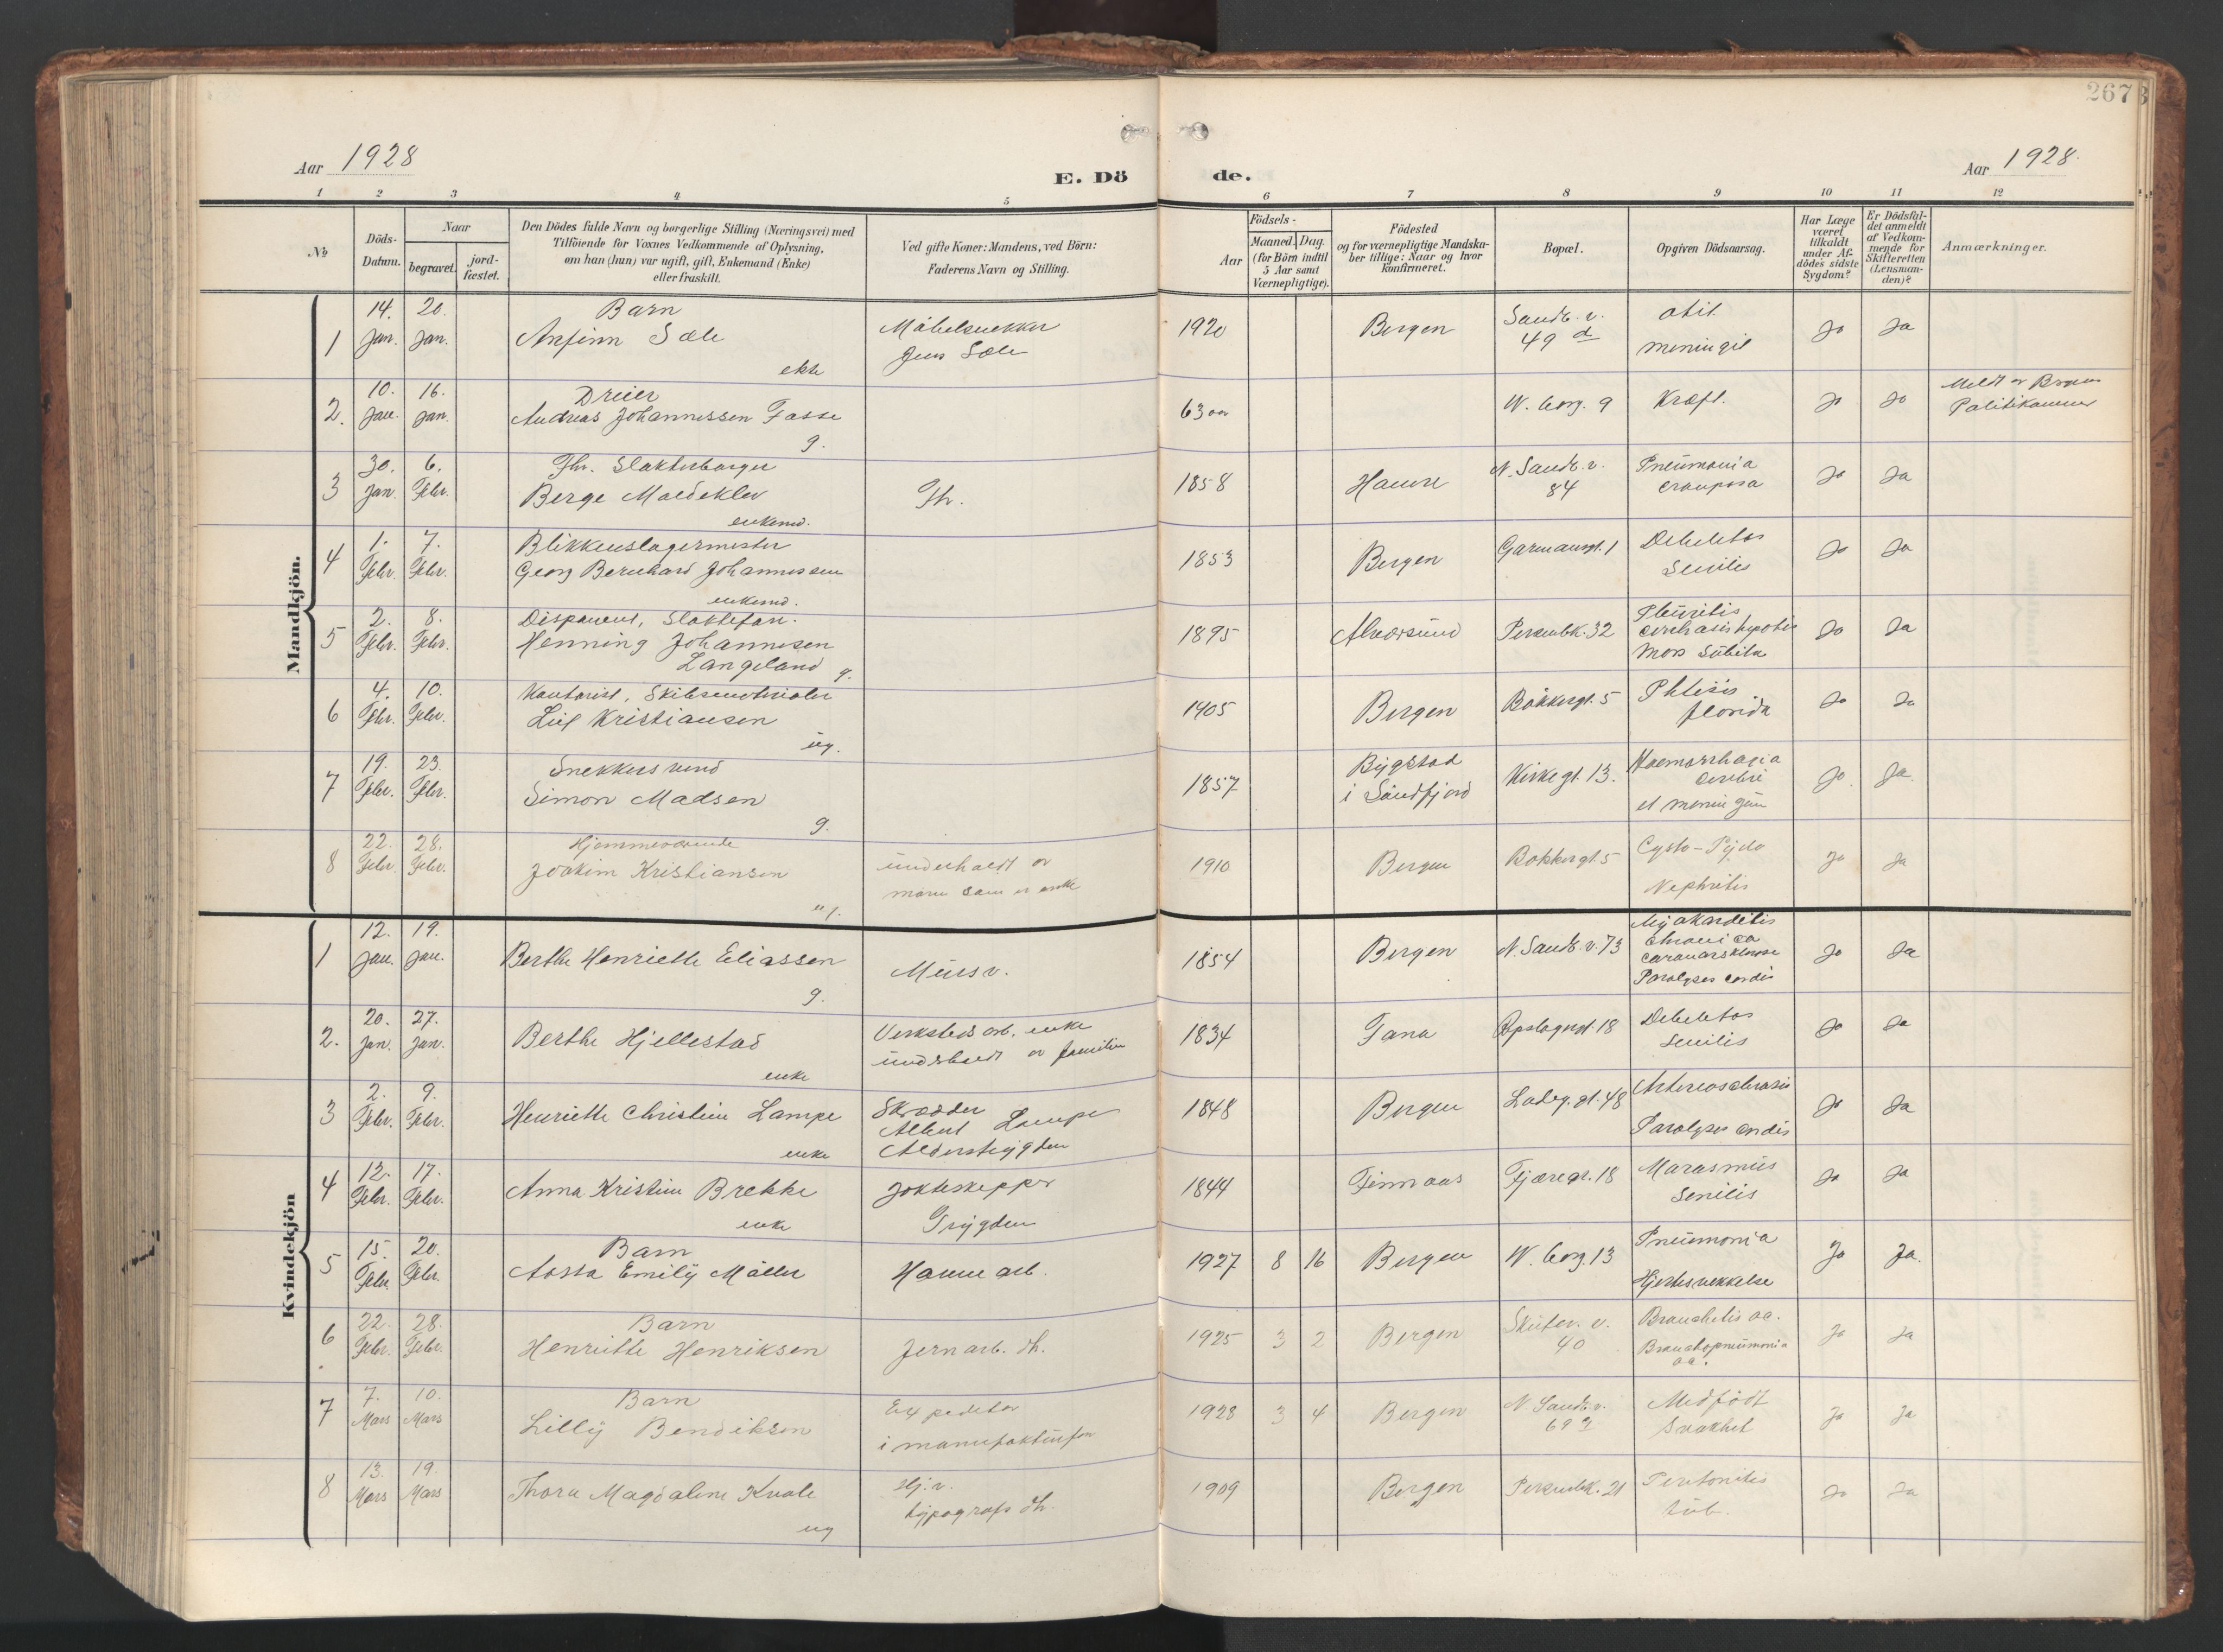 267
Aar 1928
E. Döde.
Aar 1928.
1 2 3 4 5 6 7 8 9 10 11 12
No
Döds-Datum.
Naar
begravet.
jord-fæstet.
Den Dödes fulde Navn og borgerlige Stilling (Næringsvei) med
Tilföiende for Voxnes Vedkommende af Oplysning,
om han (hun) var ugift, gift, Enkemand (Enke)
eller fraskilt.
Ved gifte Koner: Mandens, ved Börn:
Faderens Navn og Stilling.
Födsels-
Aar
Maaned. Dag.
(for Börn indtil
5 Aar samt
Værnepligtige).
Födested
og for værnepligtige Mandska-
ber tillige: Naar og hvor
konfirmeret.
Bopæl.
Opgiven Dödsaarsag.
Har Læge
været
tilkaldt
under Af-
dödes sidste
Sygdom?
Er Dödsfal-
det anmeldt
af Vedkom-
mende for
Skifteretten
(Lensman-
den)?
Anmærkninger.
Mandkjön.
1 14. Jan. 20. Jan. Barn
Anfinn Sæle
ekte
Möbelsnekker
Jens Sæle
1920 Bergen Sandv. v. 49 d otit
meningit Ja Ja
2. 10. Jan. 16. Jan. Dreier
Andreas Johannessen Fasse
g.
63 aar W. Korg. 9 Kræft. Ja Ja Meldt av Bergens
Politikammer
3 30. Jan. 6. Febr. Fhv. Slakterborger
Berge Moldeklev
enkem.
Fh.
1858 Hamre N. Sandv. v. 84 Pneumonia
crouposa Ja Ja
4 1. Febr. 7. Febr. Blikkenslagermester
Georg Bernhard Johannessen
enkem.
1853 Bergen Garmansgt. 1 Debelitas
Senilis Ja Ja
5 2. Febr. 8. Febr. Disponent, Slakteforr.
Henning Johannesen
Langeland g.
1895 Alversund Persenbk. 32 Pleuritis
cirrhosis hepatis
Mors Subita Ja Ja
6 4. Febr. 10. Febr. Kontorist, Skibsmateriale
Leif Kristiansen
ug.
1905 Bergen Bökkergt. 5 Phtisis
florida Ja Ja
7 19. Febr. 23. Febr. Snekkersvend
Simon Madsen
g.
1857 Bygstad
i Söndfjord Kirkegt. 13. Haemorrhagia
cerebri
et meningum Ja Ja
8 22. Febr. 28. Febr. Hjemmeværende
Joakim Kristiansen
ug.
underholdt av
moren som er enke
1910 Bergen Bökkergt. 5 Cysto-Pyelo
Nephritis Ja Ja
Kvindekjön
1 12. Jan. 19. Jan. Berthe Henriette Eliassen
g.
Murs v.
1854 Bergen N. Sandv. v. 73 Myokarditis
chronica
Coronarsklerose
Paralyses cordis Ja Ja
2. 20. Jan. 27. Jan. Berthe Hjellestad
enke
Verksteds arb. enke
underholdt av familien
1834 Fana Opslagergt. 18 Debelitas
Senilis Ja Ja
3 2. Febr. 9. Febr. Henriette Christine Lampe
enke
Skrædder
Albert Lampe
Alderstrygden
1848 Bergen Ladeg. gt. 48 Arteriosclerosis
Paralyses cordis Ja Ja
4 12. Febr. 17. Febr. Anna Kristine Brekke
enke
Jakteskipper
Trygden
1844 Finnaas Fjæregt. 18 Marasmus
Senilis Ja Ja
5 15. Febr. 20. Febr. Barn
Aosta Emily Möller
Havnearb.
1927 8 16 Bergen W. Korg. 13 Pneumonia
Hjertesvekkelse Ja Ja.
6 22. Febr. 28. Febr. Barn
Henriette Henriksen
Jernarb. dh.
1925 3 2 Bergen Skutev. v. 40 Bronchitis ac.
Bronchopneumonia
ac. Ja Ja
7 7. Mars 10. Mars Barn
Lilly Bendiksen
Expeditör
i manufakturforr.
1928 3 4 Bergen N. Sandv. v. 69 a Medfödt
Svakhet Ja Ja
8 13. Mars 19. Mars Thora Magdalene Kvale
ug
Hj. v.
typografs dh.
1909 Bergen Persenbk. 21 Peritonitis
tub. Ja Ja